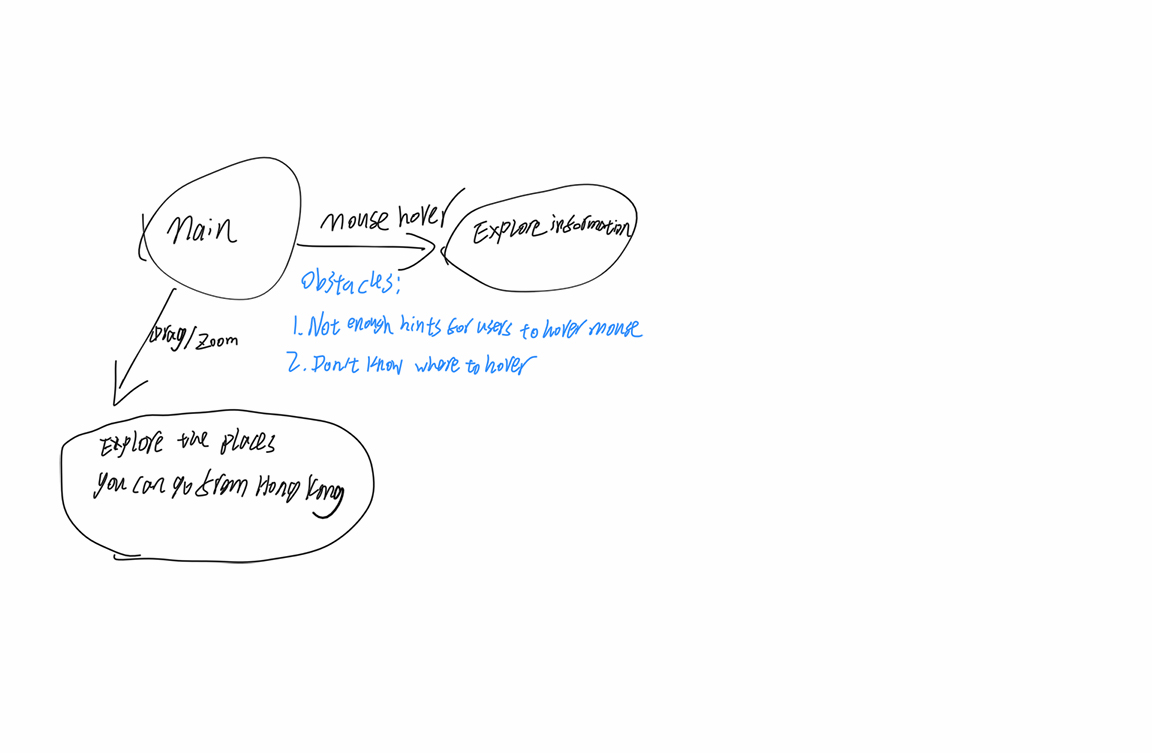 Main
mouse hover
Explore information
Obstacles:
1. Not enough hints for users to hover mouse
2. Don't know where to hover
Drag/Zoom
Explore the places
you can go from Hong Kong